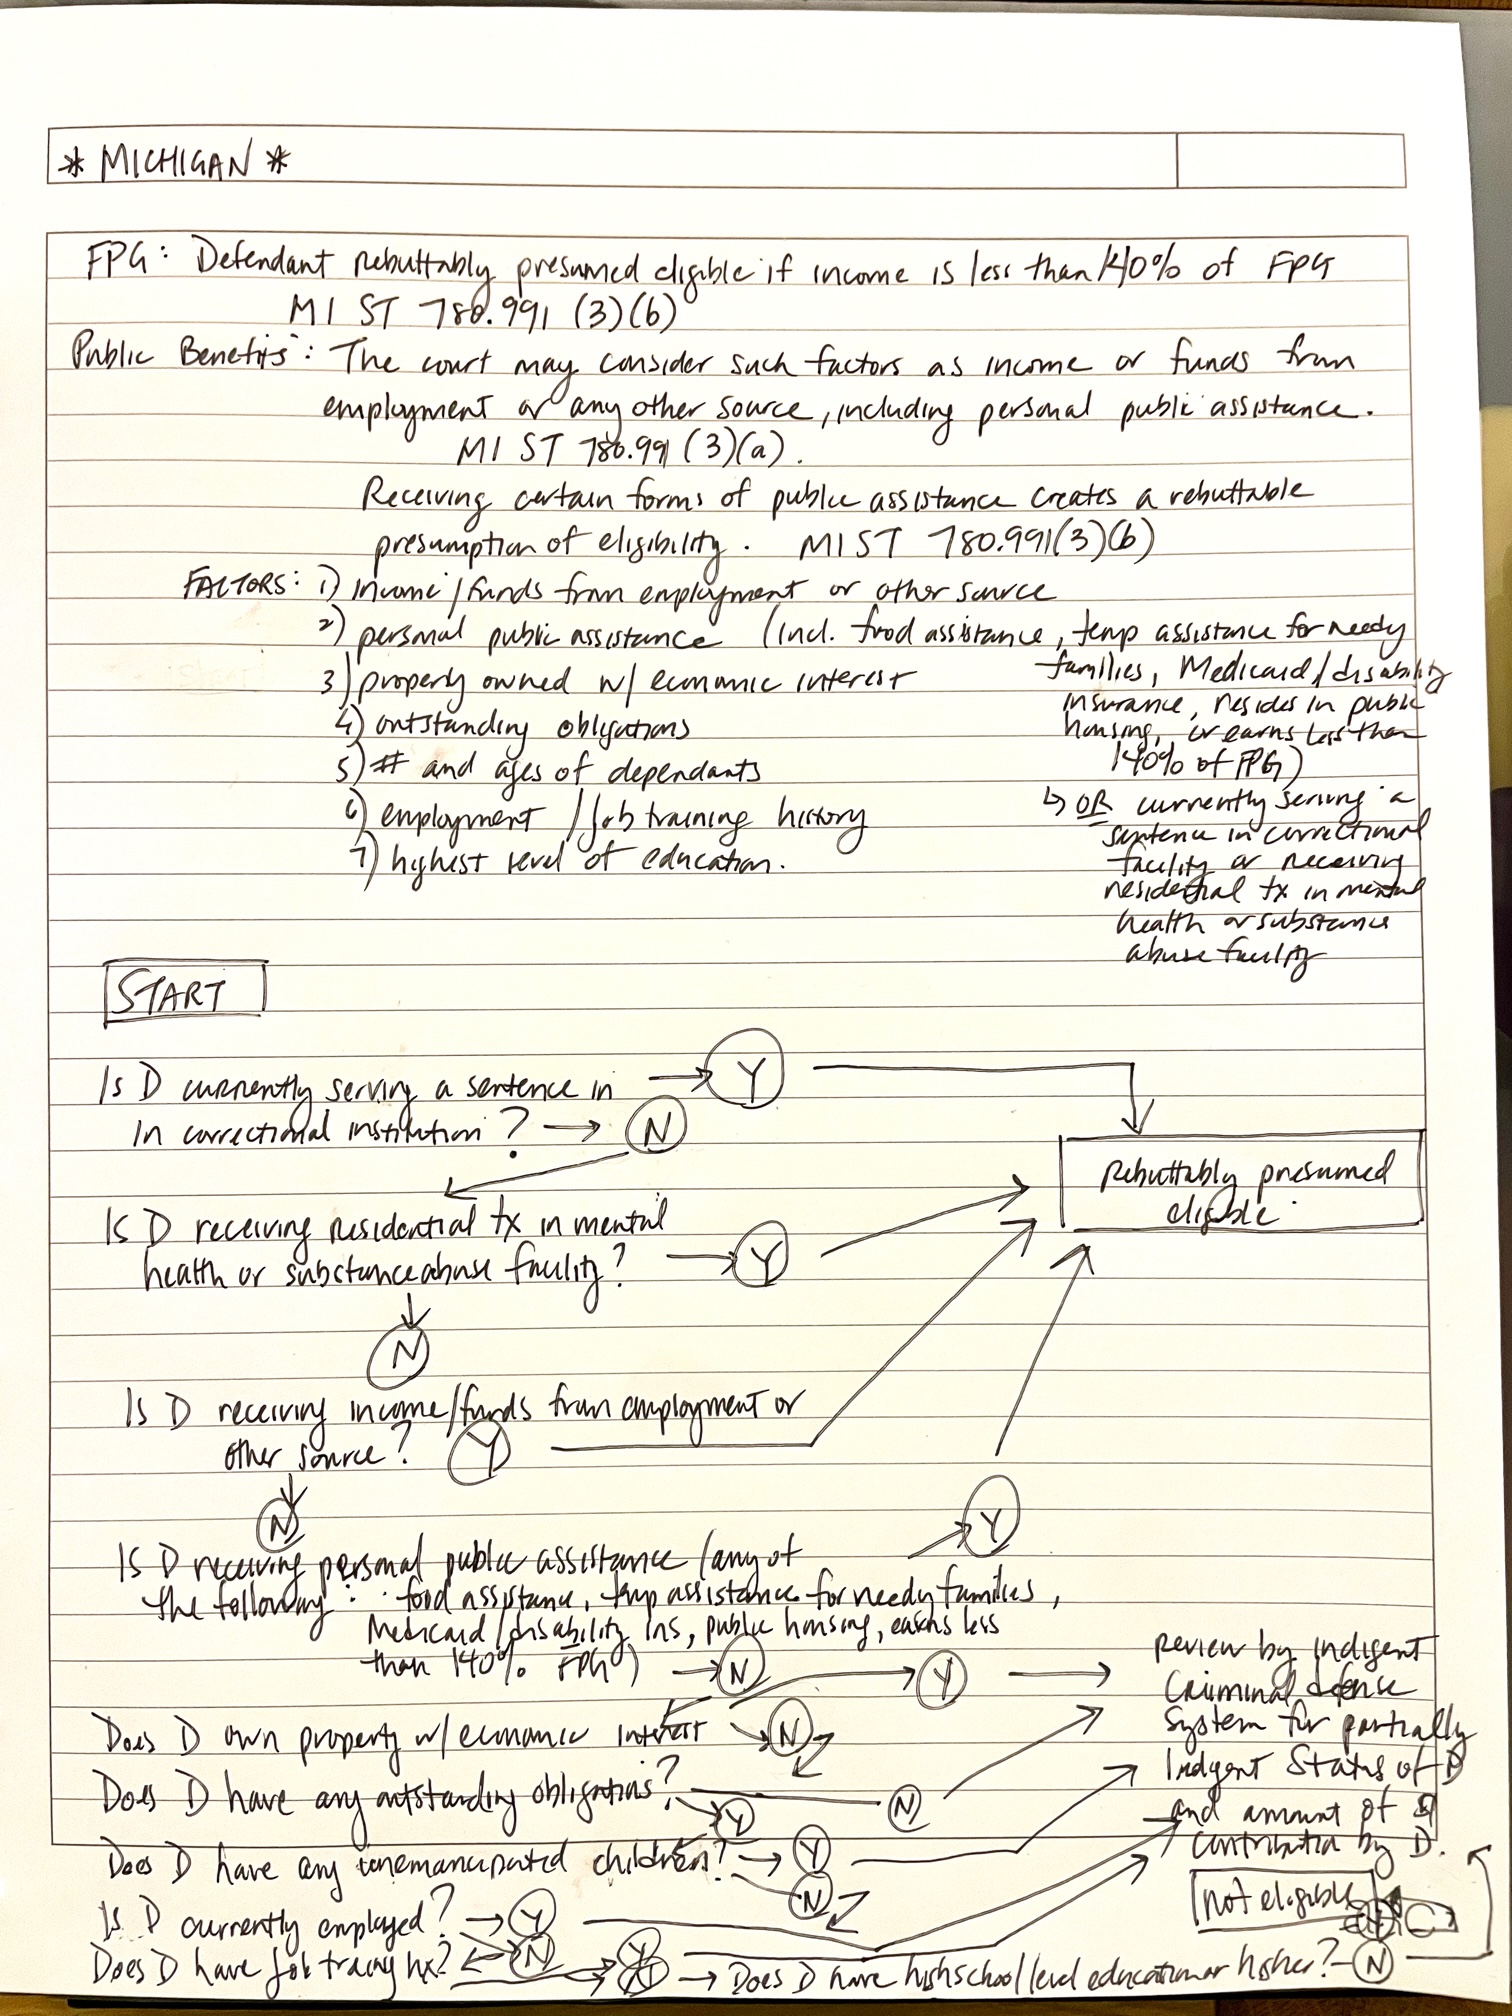 * MICHIGAN *
FPG: Defendant rebuttably presumed eligible if income is less than 140% of FPG
MI ST 780.991 (3)(b)
Public Benefits: The court may consider such factors as income or funds from
employment or any other source, including personal public assistance.
MI ST 780.991 (3)(a).
Receiving certain forms of public assistance creates a rebuttable
presumption of eligibility. MI ST 780.991(3)(b)
FACTORS: 1) income/funds from employment or other source
2) personal public assistance (incl. food assistance, temp assistance for needy
families, Medicaid/disability
insurance, resides in public
housing, or earns less than
140% of FPG)
↳ OR currently serving a
sentence in correctional
facility or receiving
residential tx in mental
health or substance
abuse facility
3) property owned w/ economic interest
4) outstanding obligations
5) # and ages of dependants
6) employment / job training history
7) highest level of education.
START
Is D currently serving a sentence in → Y
in correctional institution? → N
rebuttably presumed
eligible
Is D receiving residential tx in mental
health or substance abuse facility? → Y
N
Is D receiving income/funds from employment or
other source? Y
N
Is D receiving personal public assistance (any of → Y
the following: food assistance, temp assistance for needy families,
Medicaid/disability ins, public housing, earns less
than 140% FPG) → N
Does D own property w/ economic interest N
Y →
review by indigent
criminal defense
system for partially
indigent status of D
and amount of $
contribution by D.
Does D have any outstanding obligations? N
Y
Does D have any unemancipated children? → Y
N
not eligible
Is D currently employed? → Y
N
Does D have job training hx? → Does D have highschool level education or higher? - N